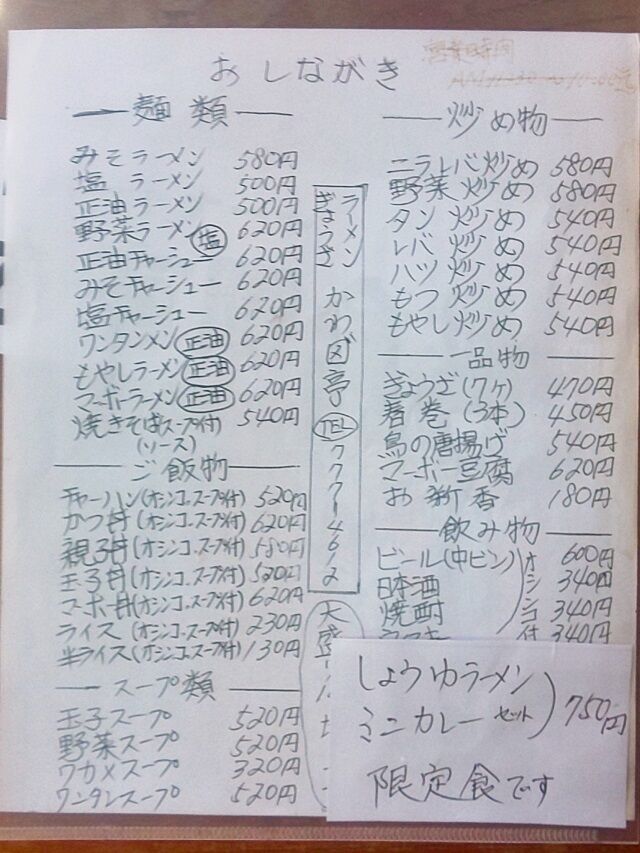 おしながき
営業時間
麺類
みそラーメン 580円
塩ラーメン 500円
正油ラーメン 500円
野菜ラーメン 塩 620円
正油チャーシュー 620円
みそチャーシュー 620円
塩チャーシュー 620円
ワンタンメン 正油 620円
もやしラーメン 正油 620円
マーボーラーメン 正油 620円
焼きそばスープ付 540円
(ソース)
ご飯物
チャーハン(オシンコ.スープ付) 520円
かつ丼(オシンコ.スープ付) 620円
親子丼(オシンコ.スープ付) 580円
玉子丼(オシンコ.スープ付) 520円
マーボ丼(オシンコ.スープ付) 620円
ライス(オシンコ.スープ付) 230円
半ライス(オシンコ.スープ付) 130円
スープ類
玉子スープ 520円
野菜スープ 520円
ワカメスープ 320円
ワンタンスープ 520円
ラーメン
ぎょうざ
かわばた亭 TEL 777-4612
大盛
炒め物
ニラレバ炒め 580円
野菜炒め 580円
タン炒め 540円
レバ炒め 540円
ハツ炒め 540円
もつ炒め 540円
もやし炒め 540円
一品物
ぎょうざ(7ヶ) 470円
春巻(3本) 450円
鳥の唐揚げ 540円
マーボー豆腐 620円
お新香 180円
飲み物
ビール(中ビン) 600円
日本酒 340円
焼酎 340円
340円
オシンコ付
しょうゆラーメン
ミニカレーセット 750円
限定食です